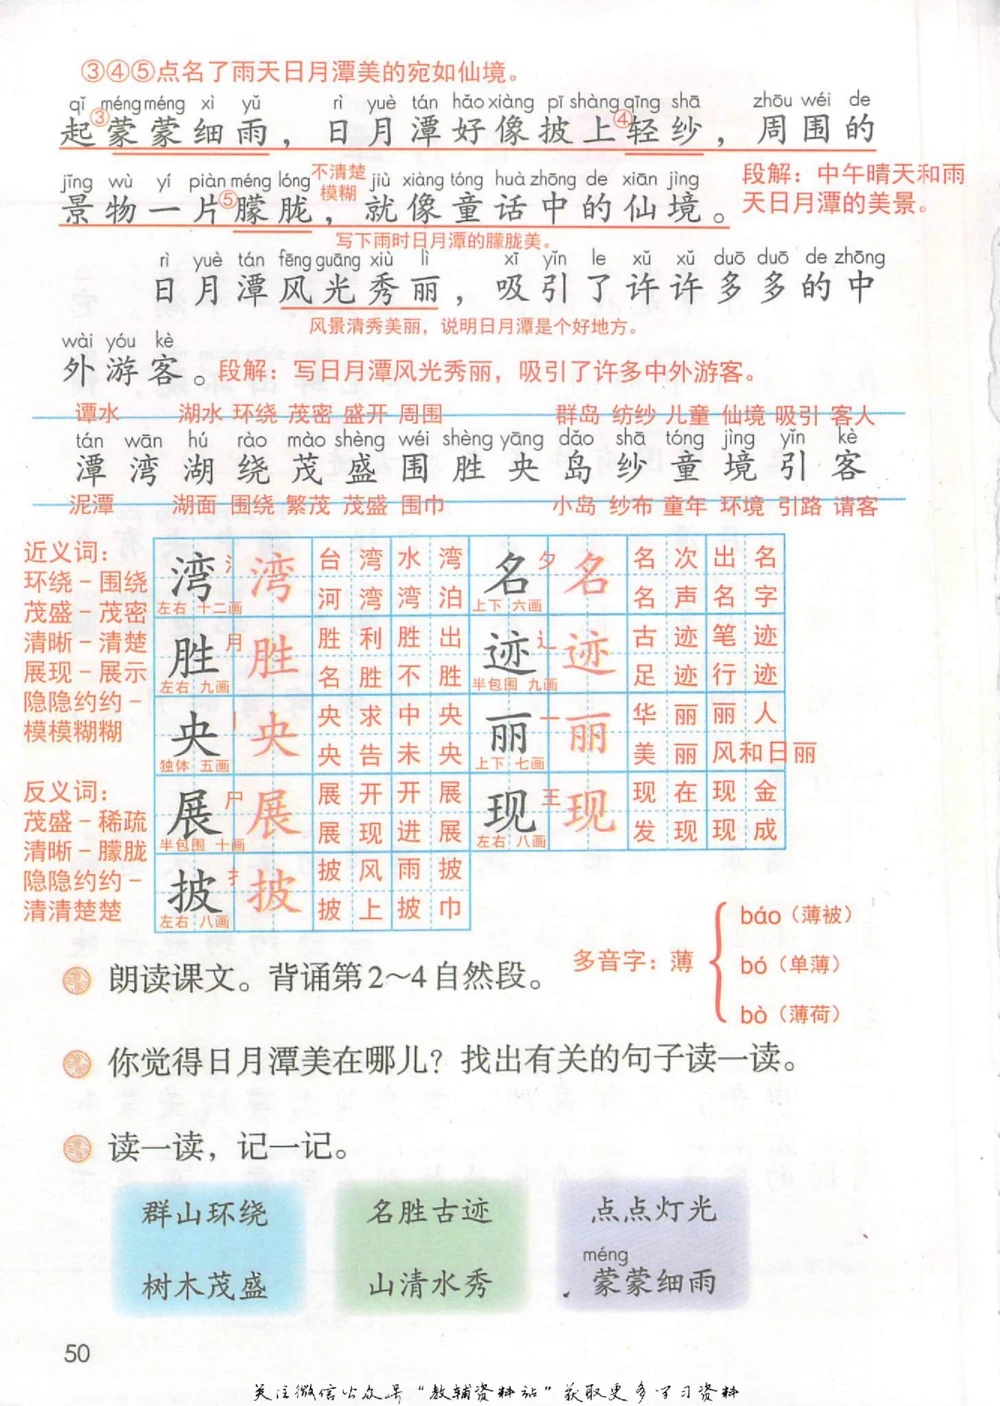 ③④⑤点名了雨天日月潭美的宛如仙境。
qǐ méng méng xì yǔ rì yuè tán hǎo xiàng pī shàng qīng shā zhōu wéi de
起③蒙蒙细雨，日月潭好像披上④轻纱，周围的
jǐng wù yí piàn méng lóng 不清楚 模糊 jiù xiàng tóng huà zhōng de xiān jìng
景物一片⑤朦胧，就像童话中的仙境。
段解：中午晴天和雨
天日月潭的美景。
写下雨时日月潭的朦胧美。
rì yuè tán fēng guāng xiù lì xī yǐn le xǔ xǔ duō duō de zhōng
日月潭风光秀丽，吸引了许许多多的中
风景清秀美丽，说明日月潭是个好地方。
wài yóu kè
外游客。段解：写日月潭风光秀丽，吸引了许多中外游客。
谭水 湖水 环绕 茂密 盛开 周围 群岛 纺纱 儿童 仙境 吸引 客人
tán wān hú rào mào shèng wéi shèng yāng dǎo shā tóng jìng yǐn kè
潭 湾 湖 绕 茂 盛 围 胜 央 岛 纱 童 境 引 客
泥潭 湖面 围绕 繁茂 茂盛 围巾 小岛 纱布 童年 环境 引路 请客
近义词：
环绕－围绕
茂盛－茂密
清晰－清楚
展现－展示
隐隐约约－
模模糊糊
反义词：
茂盛－稀疏
清晰－朦胧
隐隐约约－
清清楚楚
湾 氵 湾 台湾 水湾 名 夕 名 名次 出名
左右 十二画 河湾 湾泊 上下 六画 名声 名字
胜 月 胜 胜利 胜出 迹 辶 迹 古迹 笔迹
左右 九画 名胜 不胜 半包围 九画 足迹 行迹
央 丨 央 央求 中央 丽 一 丽 华丽 丽人
独体 五画 央告 未央 上下 七画 美丽 风和日丽
展 尸 展 展开 开展 现 王 现 现在 现金
半包围 十画 展现 进展 左右 八画 发现 现成
披 扌 披 披风 雨披
左右 八画 披上 披巾
多音字：薄
báo（薄被）
bó（单薄）
bò（薄荷）
朗读课文。背诵第2～4自然段。
你觉得日月潭美在哪儿？找出有关的句子读一读。
读一读，记一记。
群山环绕 名胜古迹 点点灯光
méng
树木茂盛 山清水秀 蒙蒙细雨
50
关注微信公众号“教辅资料站”获取更多学习资料